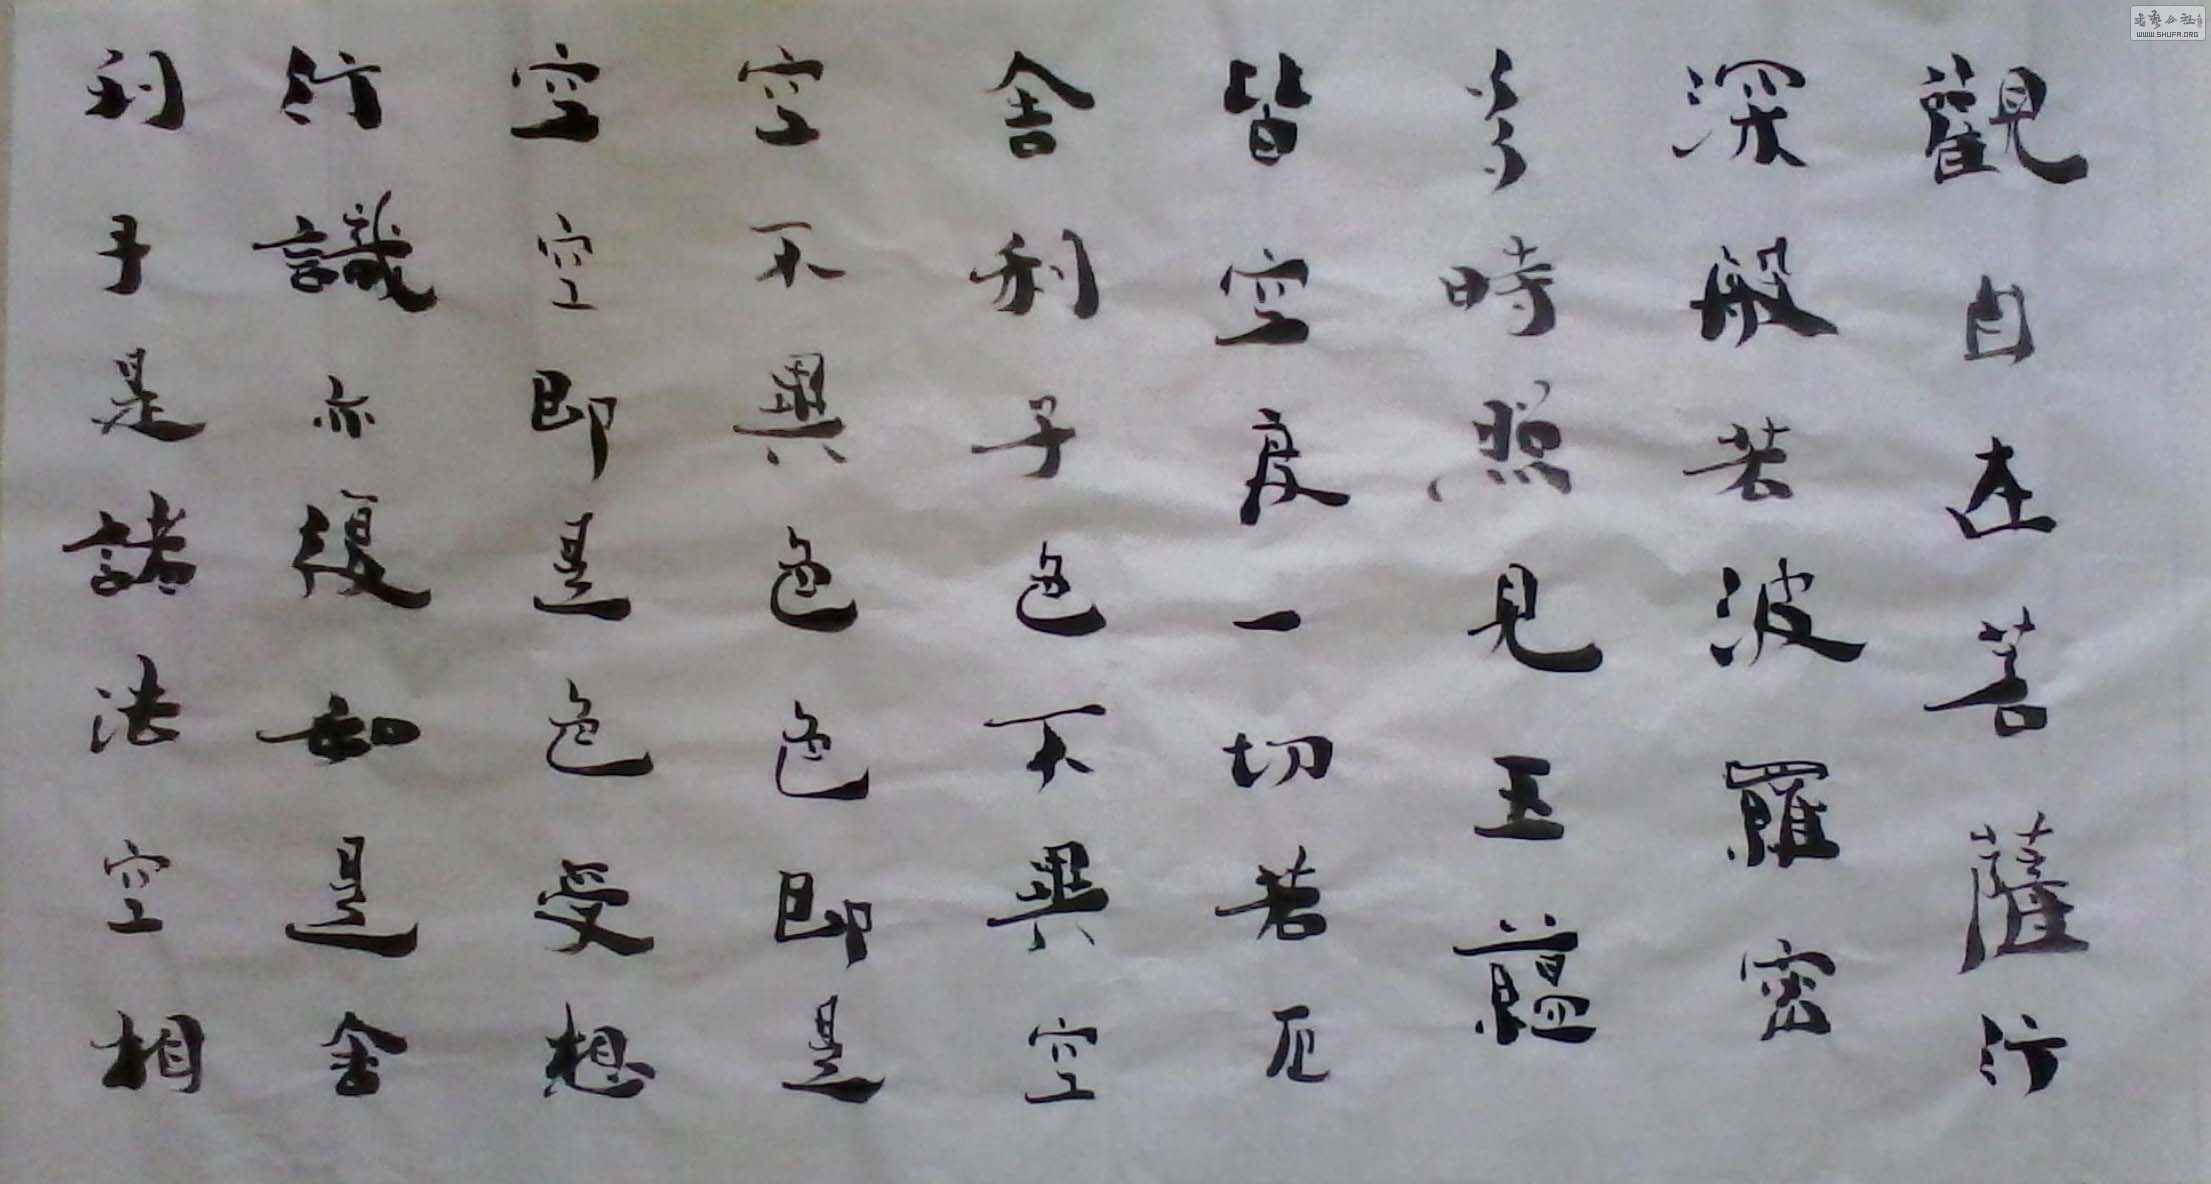 觀自在菩薩行
深般若波羅密
多時照見五蘊
皆空度一切若厄
舍利子色不異空
空不異色色即是
空空即是色受想
行識亦復如是舍
利子是諸法空相
書藝公社
WWW.SHUFA.ORG